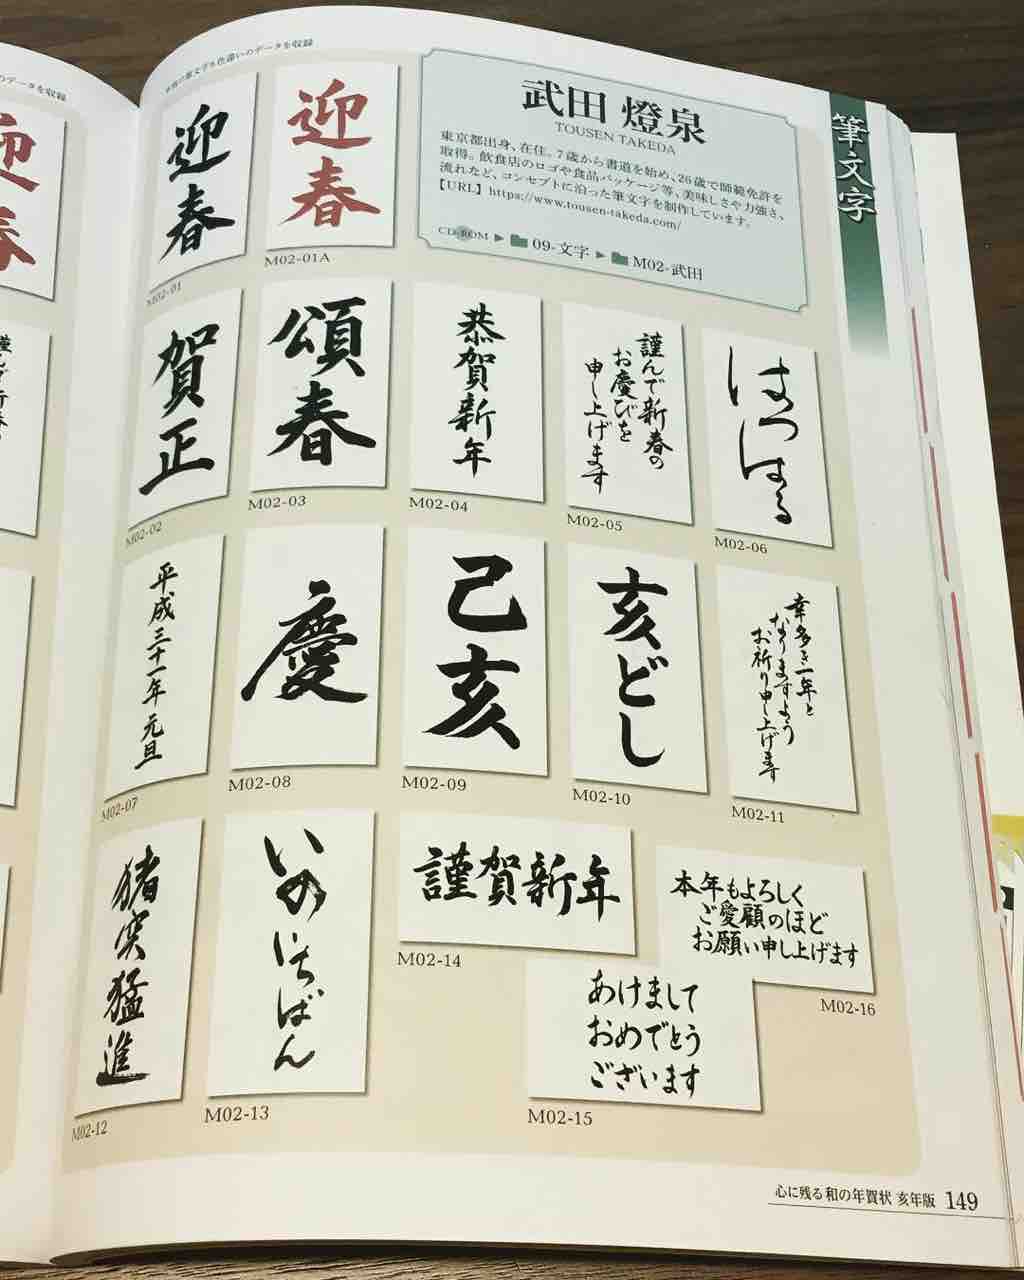 本書の筆文字も色違いのデータを収録
迎春
M02-01
迎春
M02-01A
武田 燈泉
TOUSEN TAKEDA
東京都出身、在住。7歳から書道を始め、26歳で師範免許を
取得。飲食店のロゴや食品パッケージ等、美味しさや力強さ、
流れなど、コンセプトに沿った筆文字を制作しています。
【URL】https://www.tousen-takeda.com/
CD-ROM ▶ 09-文字 ▶ M02-武田
筆文字
賀正
M02-02
頌春
M02-03
恭賀新年
M02-04
謹んで新春の
お慶びを
申し上げます
M02-05
はつはる
M02-06
平成三十一年 元旦
M02-07
慶
M02-08
己亥
M02-09
亥どし
M02-10
幸多き一年と
なりますよう
お祈り申し上げます
M02-11
猪突猛進
M02-12
いのいちばん
M02-13
謹賀新年
M02-14
本年もよろしく
ご愛顧のほど
お願い申し上げます
M02-16
あけまして
おめでとう
ございます
M02-15
心に残る和の年賀状 亥年版 149